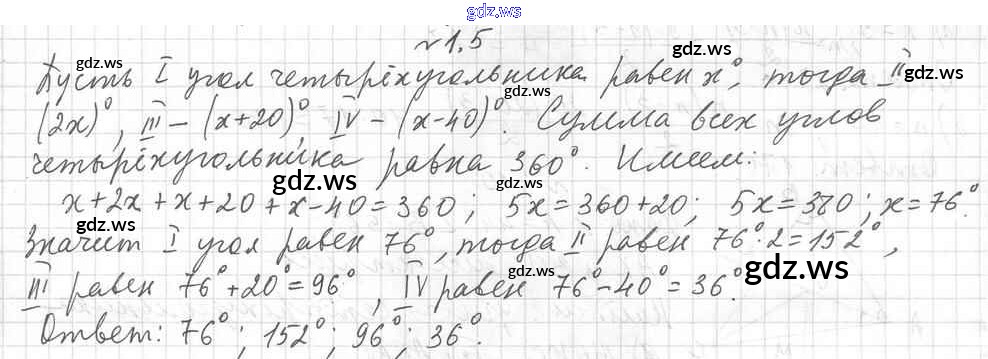 gdz.ws
№1,5
Пусть I угол четырёхугольника равен x°, тогда II
(2x)°, III – (x+20)°, IV – (x-40)°. Сумма всех углов
четырёхугольника равна 360°. Имеем:
x+2x+x+20+x-40=360; 5x=360+20; 5x=380; x=76°.
Значит I угол равен 76°, тогда II равен 76°·2=152°,
III равен 76°+20°=96°, IV равен 76°-40°=36°.
Ответ: 76°; 152°; 96°; 36°.
gdz.ws
gdz.ws
gdz.ws
gdz.ws
gdz.ws
gdz.ws
gdz.ws
gdz.ws
gdz.ws
gdz.ws